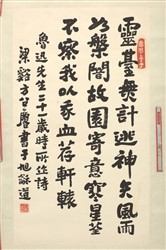 靈臺無計逃神矢風雨
如磐闇故園寄意寒星荃
不察我以我血荐軒轅
魯迅先生二十一歲時所作詩
梁谿方公書于旭龢道